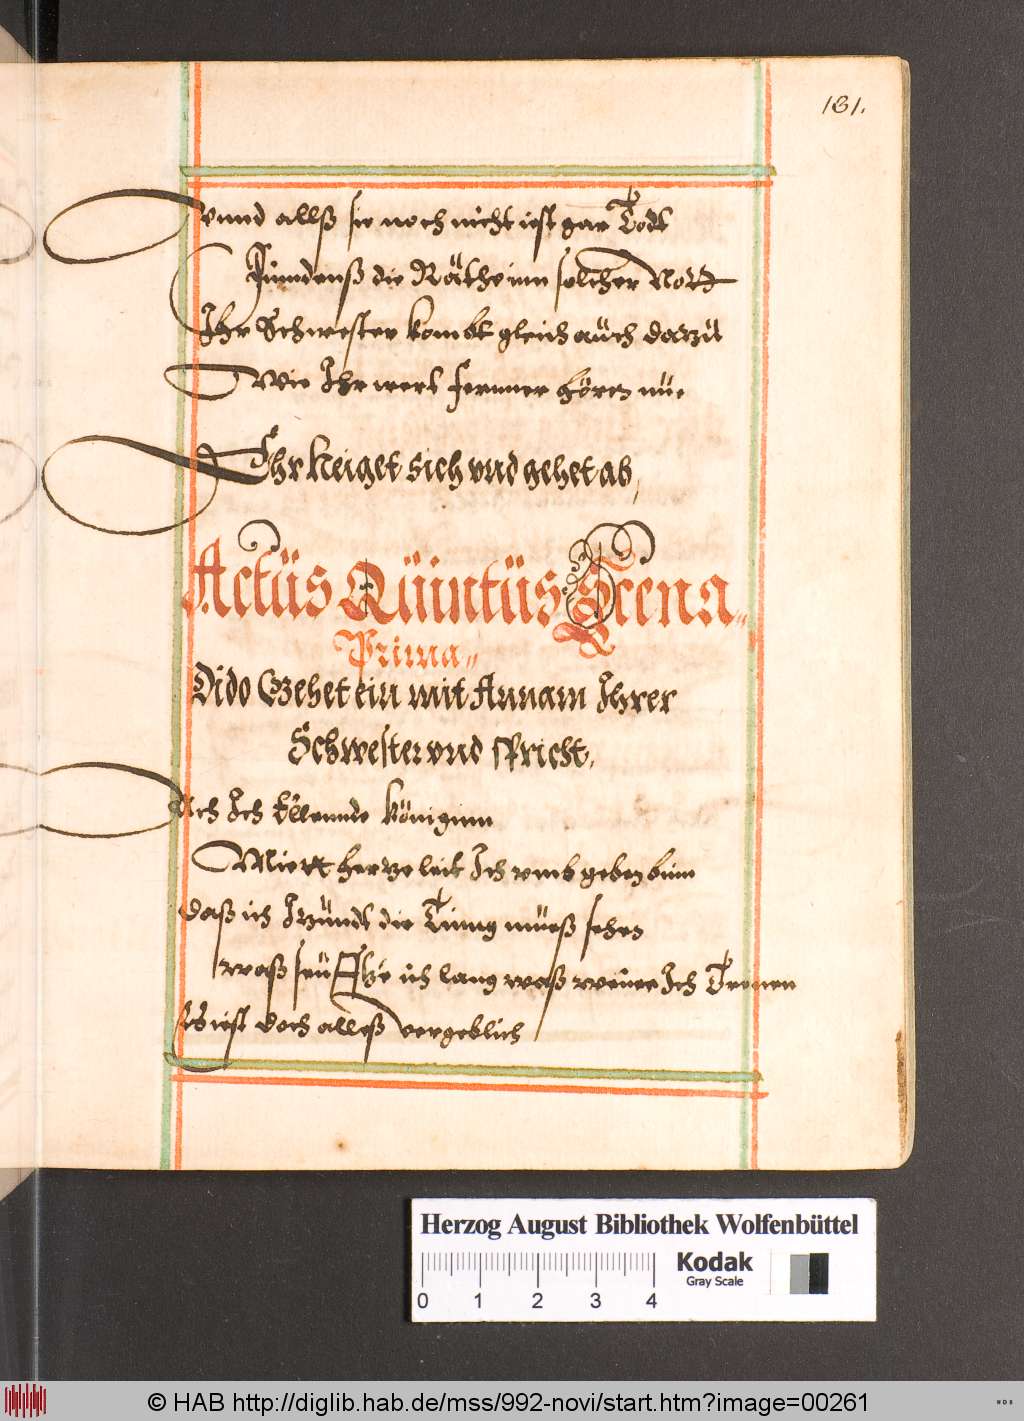 131.
vnnd allß sie noch nicht ist gar Todt
Fünndenß die Räthe inn solcher Nott
Ihr Schwester kombt gleich auch darzü
Wie Ihr wert fernner hören nüe
Ehr Neiget sich vnd gehet ab,
Actüs Qüintüs Scena
Prima
Dido Gehet ein mit Annam Ihrer
Schwester vnd spricht,
Ach Ich Ellennde Königinn
Mitt hertzeleit Ich vmbgeben binn
daß ich Itzündt die Ding müeß sehen
waß seüfftze ich lang waß weine Ich Trenen
Es ist doch alleß vergeblich
Herzog August Bibliothek Wolfenbüttel
Kodak
Gray Scale
0 1 2 3 4
© HAB http://diglib.hab.de/mss/992-novi/start.htm?image=00261